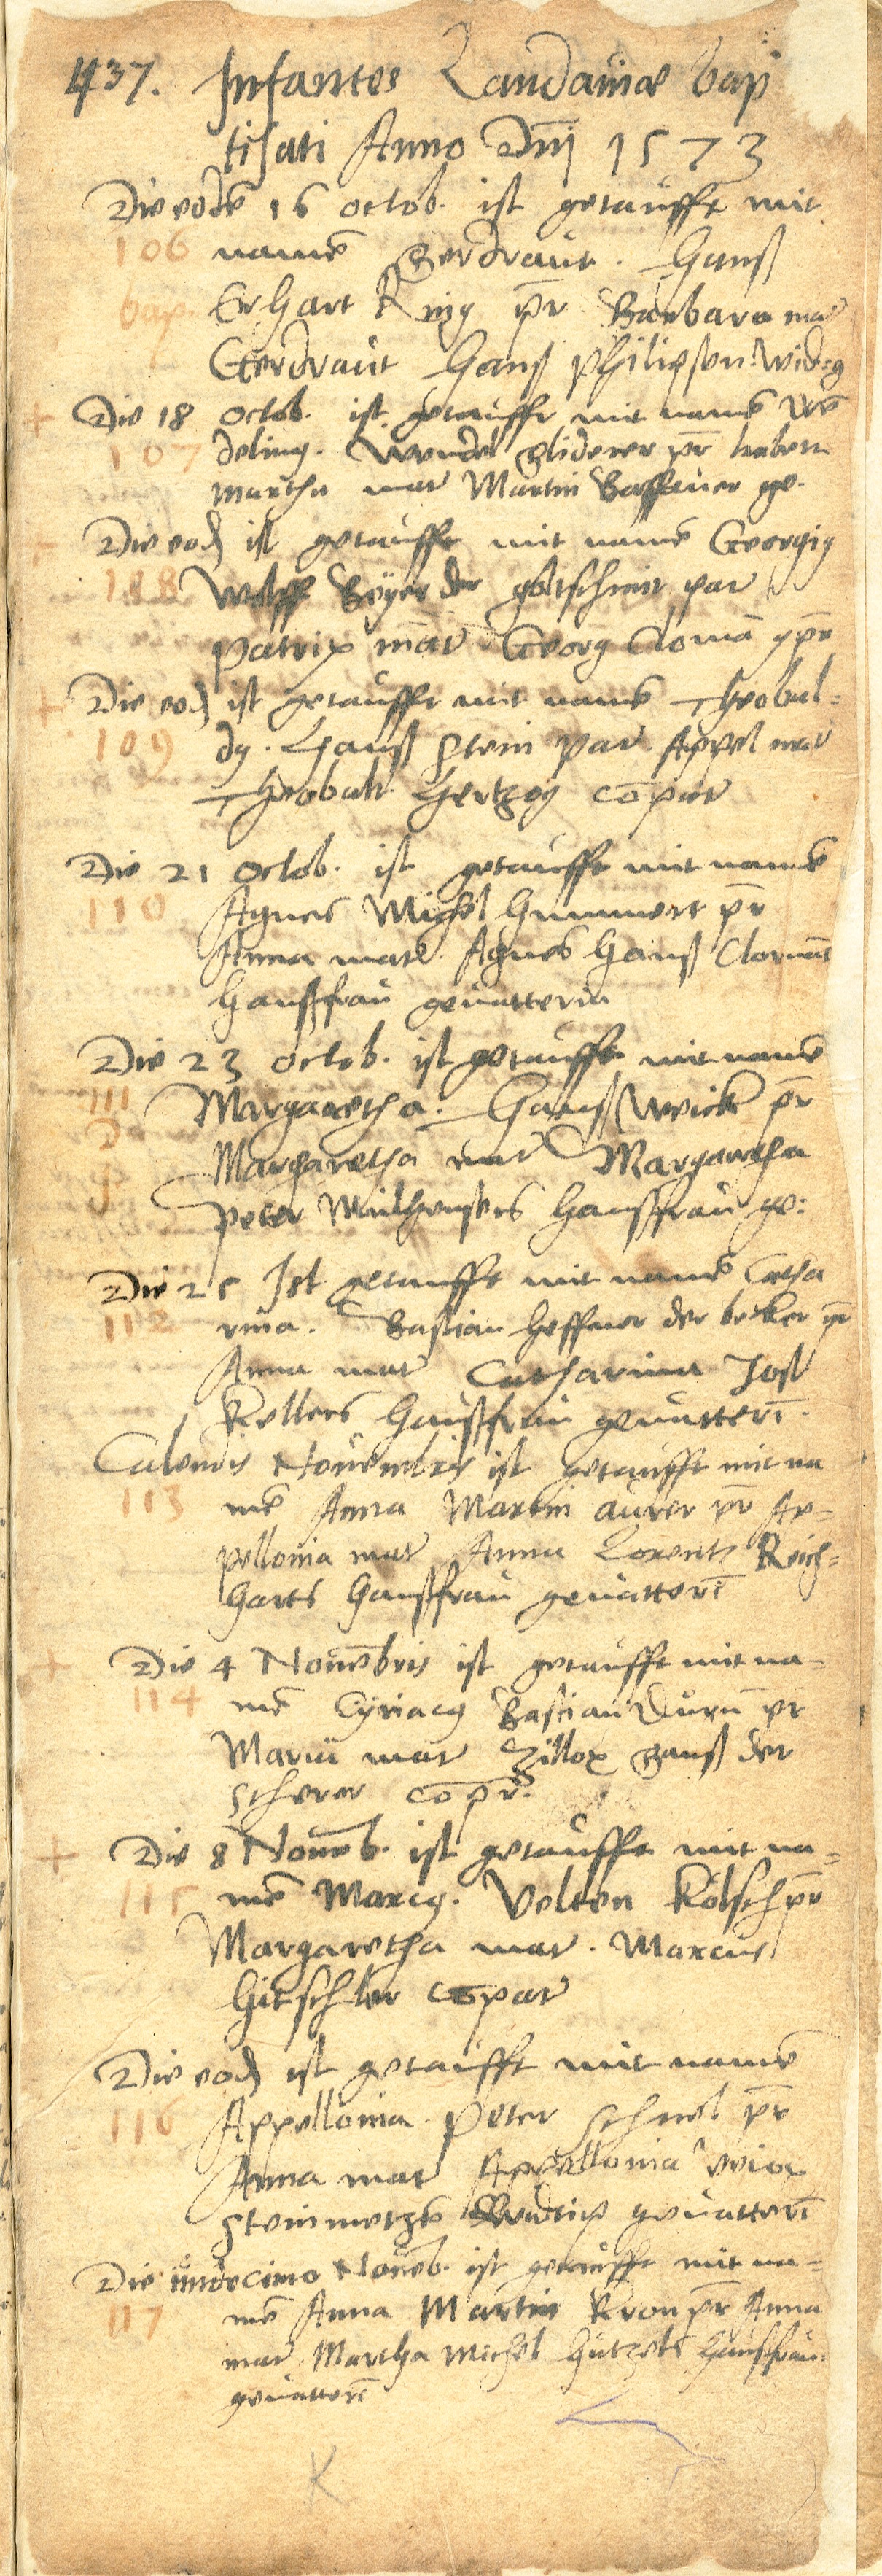 437. Infantes Landauiae bap
tisati Anno Dni 1573
Die eodē 16 octob. ist getaufft mit
106 namē Gerdraut. Hanß
bap. Erhart King pr̄ Barbara mat
Gerdraut Hanß Philipsen wid:g
Die 18 octob. ist getaufft mit namē Wē
107 deling. Wendel Gliderer pr̄
Martha mat Martin Baffener ge.
Die eod ist getaufft mit namē Georgig
108 Wolff Beÿer der goltschmit par
Patrix mat Georg Clomā gpr̄
Die eod ist getaufft mit namē Theobal=
109 dg. Hanß Stein par. Appel mat
Theobalt Hertzog copat
Die 21 octob. ist getaufft mit namē
110 Agnes Michel Hummert pr̄
Anna mat. Agnes Hanß Clomāt
haußfrau geuatterin
Die 23 octob. ist getaufft mit namē
111 Margaretha. Hanß Weick pr̄
Margaretha mat Margaretha
Peter Mulhensers haußfrau ge:
Die 25 Ist getaufft mit namē Catha
112 rina. Bastian Heffner der becker pr̄
Anna mat Catharina Jost
Kellers haußfrau geuatterī.
Calendis Nouembris ist getaufft mit na
113 mē Anna Martin aurer pr̄ Ap=
pellonia mat Anna Lorentz Reich=
harts haußfrau geuatterī
Die 4 Nouēbris ist getaufft mit na=
114 mē Cyriacg Bastian Durū pr̄
Maria mat Zillox Hanß der
scherer copr̄.
Die 8 Nouēb. ist getaufft mit na=
115 mē Marcg. Velten Kölsch pr̄
Margaretha mat. Marcus
Hitschler Copat
Die eod ist getaufft mit namē
116 Appellonia. Peter Schnel pr̄
Anna mat Appellonia veiox
Steinmetzs Widtix geuatterī
Die undecimo Nouēb. ist getaufft mit na=
117 mē Anna Martin Kron pr̄ Anna
mat Martha Michel Hutzels haußfrau
geuatterī
K